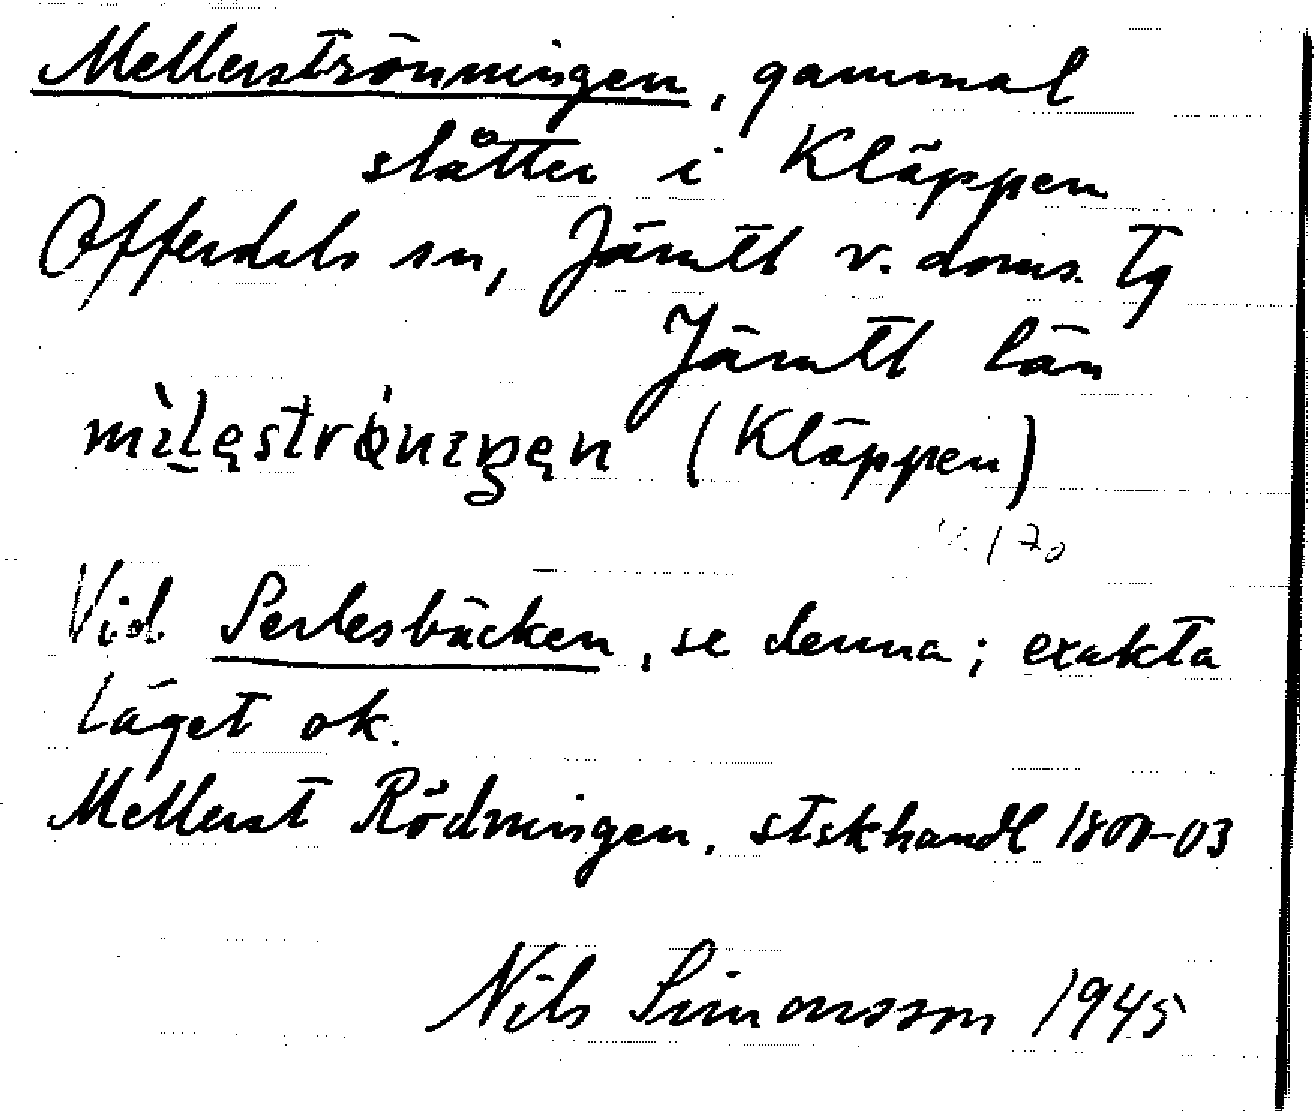 Mellerströnningen, gammal
slåtter i Kläppen
Offerdals sn, Jämtl v. doms. tg
Jämtl län
(Kläppen)
Vid Perlesbäcken, se denna; exakta
läget ok.
Mellerst Rödningen, stskhandl 1800-03
Nils Simonsson 1945